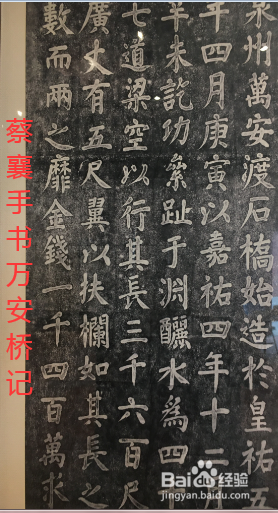 泉州萬安渡石橋始造於皇祐五
年四月庚寅以嘉祐四年十二月
辛未訖功絫趾于淵釃水為四十
七道梁空以行其長三千六百尺
廣丈有五尺翼以扶欄如其長之
數而兩之靡金錢一千四百萬求
蔡襄手书万安桥记
Baidu 经验
jingyan.baidu.com